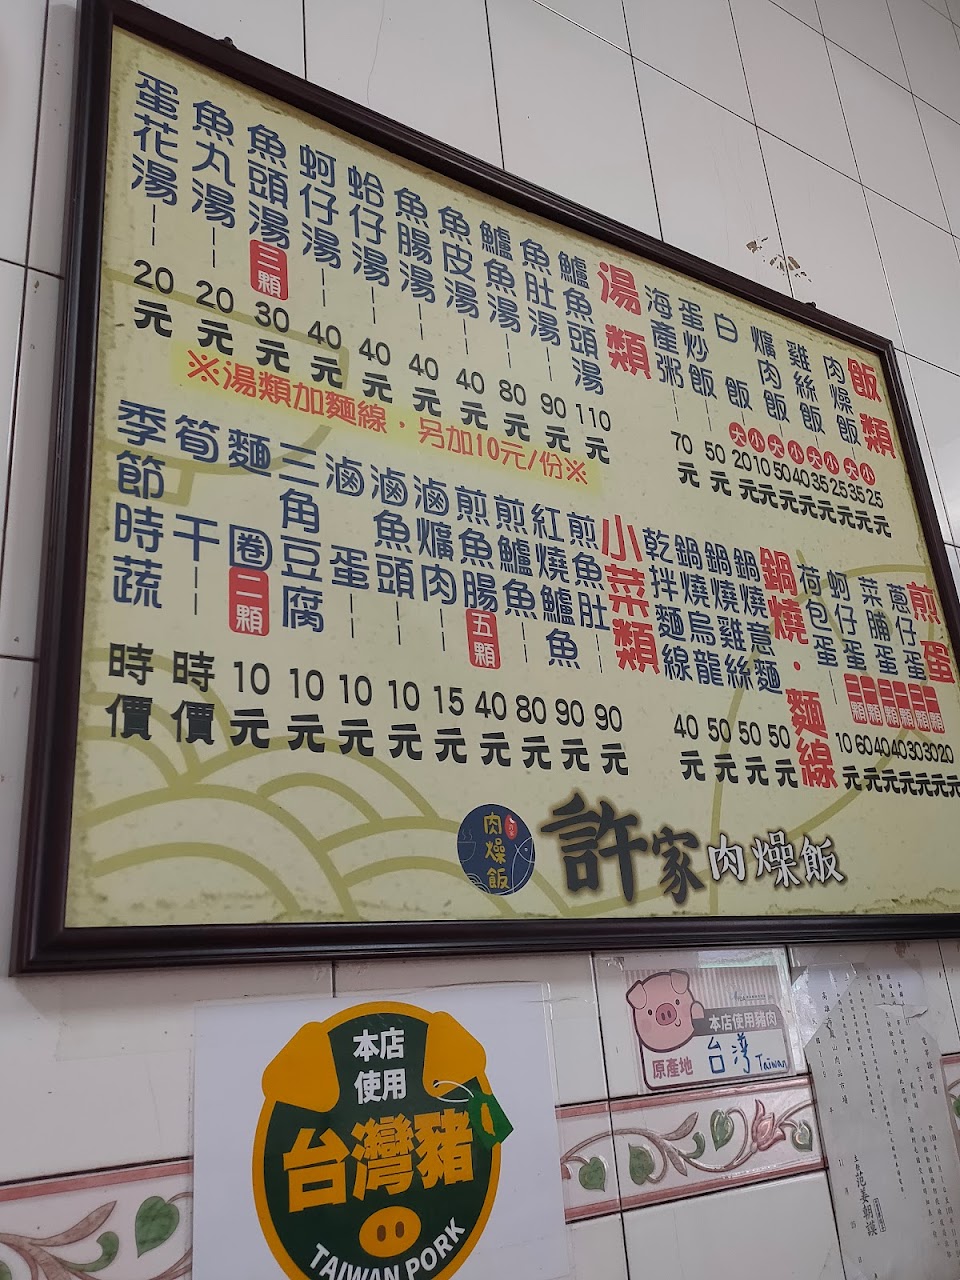 飯類
肉燥飯 大 小 35元 25元
雞絲飯 大 小 35元 25元
爌肉飯 大 小 50元 40元
白飯 大 小 20元 10元
蛋炒飯 50元
海產粥 70元
湯類
鱸魚頭湯 110元
魚肚湯 90元
鱸魚湯 80元
魚皮湯 40元
魚腸湯 40元
蛤仔湯 40元
蚵仔湯 40元
魚頭湯 三顆 30元
魚丸湯 20元
蛋花湯 20元
※湯類加麵線，另加10元/份※
煎蛋
蔥仔蛋 二顆 一顆 30元 20元
菜脯蛋 二顆 一顆 40元 30元
蚵仔蛋 二顆 一顆 60元 40元
荷包蛋 10元
鍋燒・麵線
鍋燒意麵 50元
鍋燒雞絲 50元
鍋燒烏龍 50元
乾拌麵線 40元
小菜類
煎魚肚 90元
紅燒鱸魚 90元
煎鱸魚 80元
煎魚腸 五顆 40元
滷爌肉 15元
滷魚頭 10元
滷蛋 10元
三角豆腐 10元
麵圈 二顆 10元
筍干 時價
季節時蔬 時價
肉燥飯
許家肉燥飯
本店使用豬肉
原產地
台灣 Taiwan
本店
使用
台灣豬
TAIWAN PORK